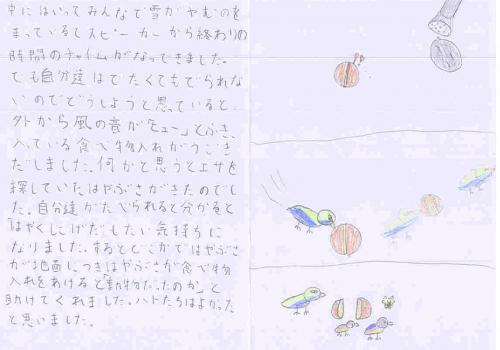 中にはいってみんなで雪がやむのを
まっているとスピーカーから終わりの
時間のチャイムがなってきました。
でも自分達はでたくてもでられな
いのでどうしようと思っていると、
外から風の音が「ビュー」とふき
入っている食べ物入れがうごき
だしました。何かと思うとエサを
探していたはやぶさがきたのでし
た。自分達がたべられると分かると
「はやくにげだしたい気持ちに
なりました。するとどこかではやぶさ
が地面につきはやぶさが食べ物
入れをあけると「動物だったのか」と
助けてくれました。ハトたちはよかった
と思いました。